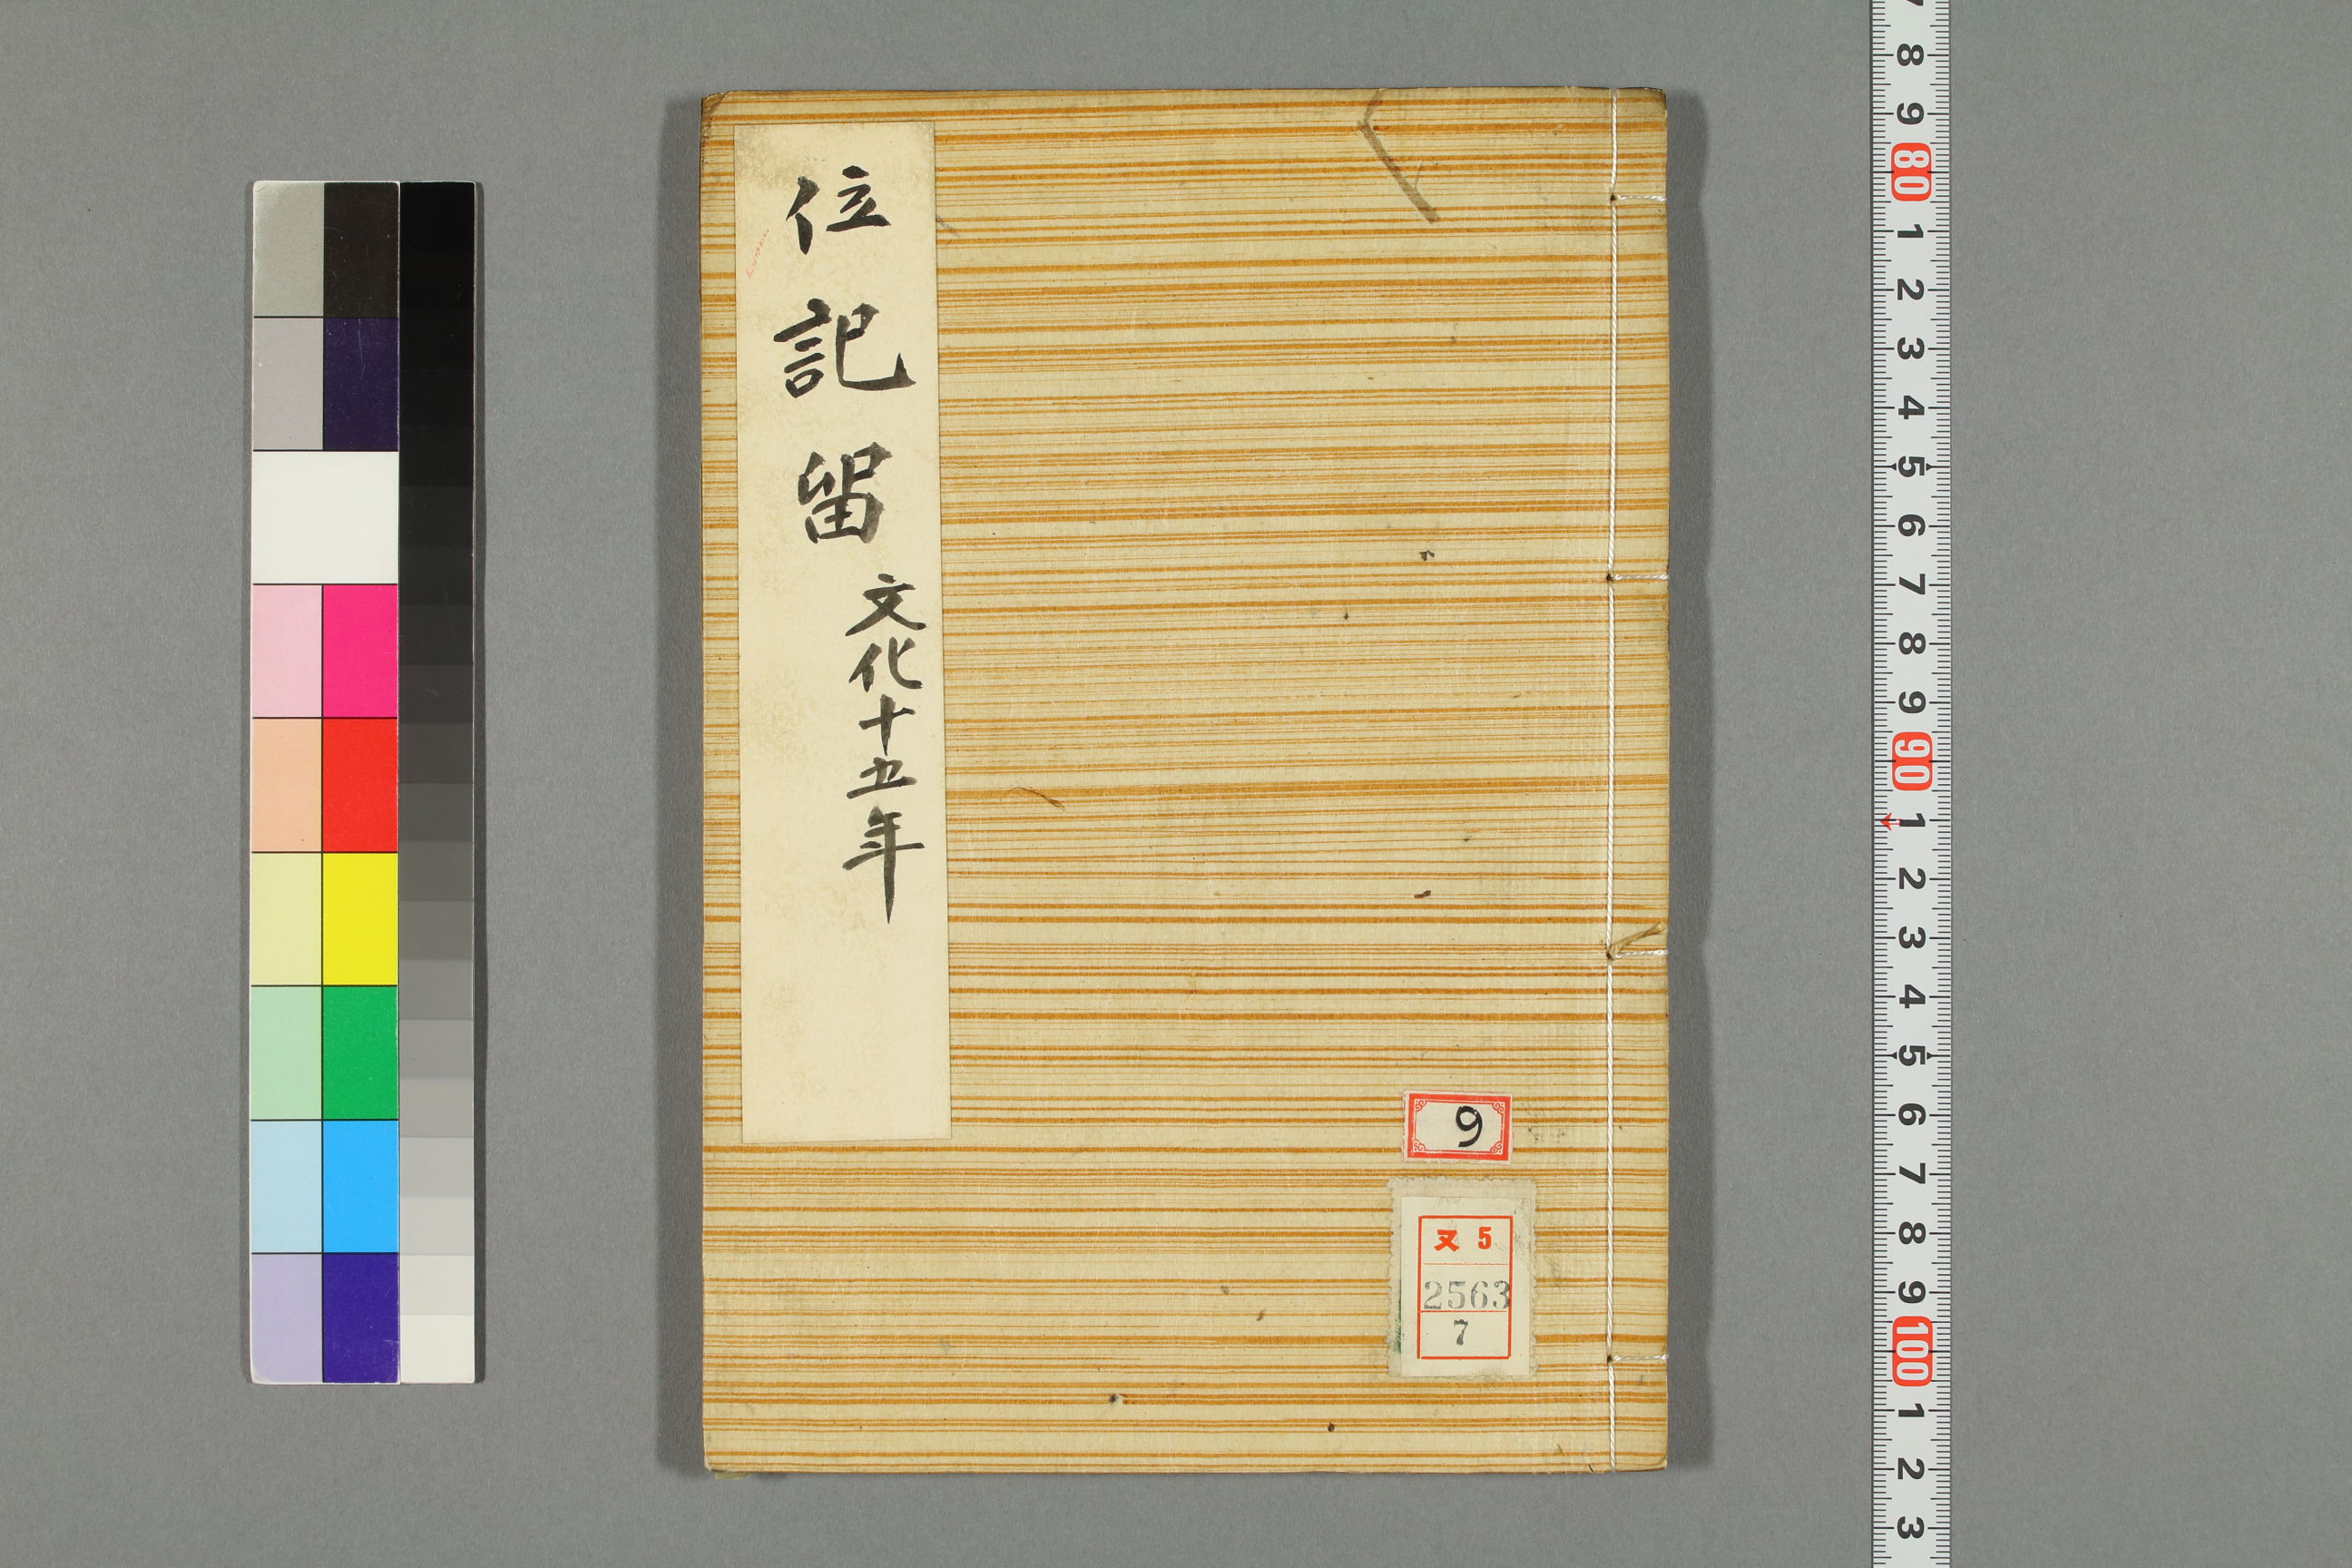 位記留
文化十五年
9
ヌ 5
2563
7
7
8
9
80
1
2
3
4
5
6
7
8
9
90
1
2
3
4
5
6
7
8
9
100
1
2
3